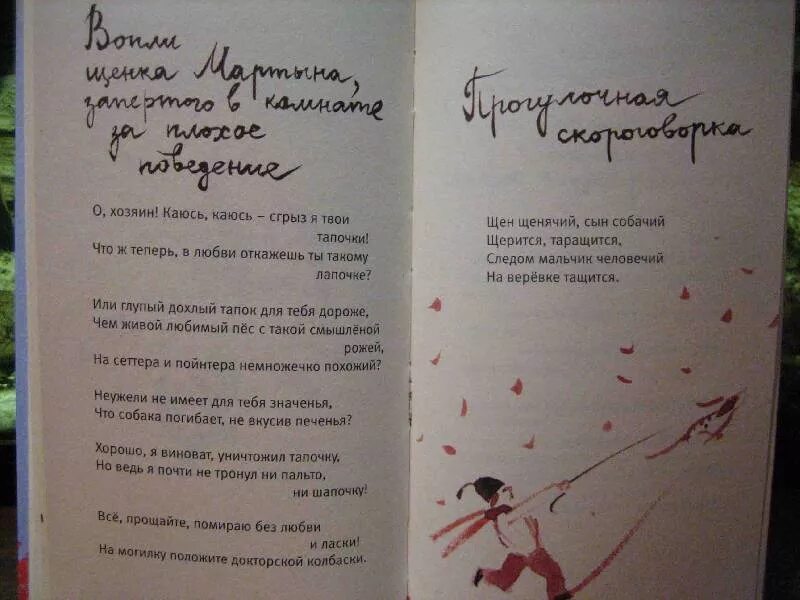 Вопли
щенка Мартына,
запертого в комнате
за плохое
поведение
О, хозяин! Каюсь, каюсь – сгрыз я твои
тапочки!
Что ж теперь, в любви откажешь ты такому
лапочке?
Или глупый дохлый тапок для тебя дороже,
Чем живой любимый пёс с такой смышлёной
рожей,
На сеттера и пойнтера немножечко похожий?
Неужели не имеет для тебя значенья,
Что собака погибает, не вкусив печенья?
Хорошо, я виноват, уничтожил тапочку,
Но ведь я почти не тронул ни пальто,
ни шапочку!
Всё, прощайте, помираю без любви
и ласки!
На могилку положите докторской колбаски.
Прогулочная
скороговорка
Щен щенячий, сын собачий
Щерится, таращится,
Следом мальчик человечий
На верёвке тащится.